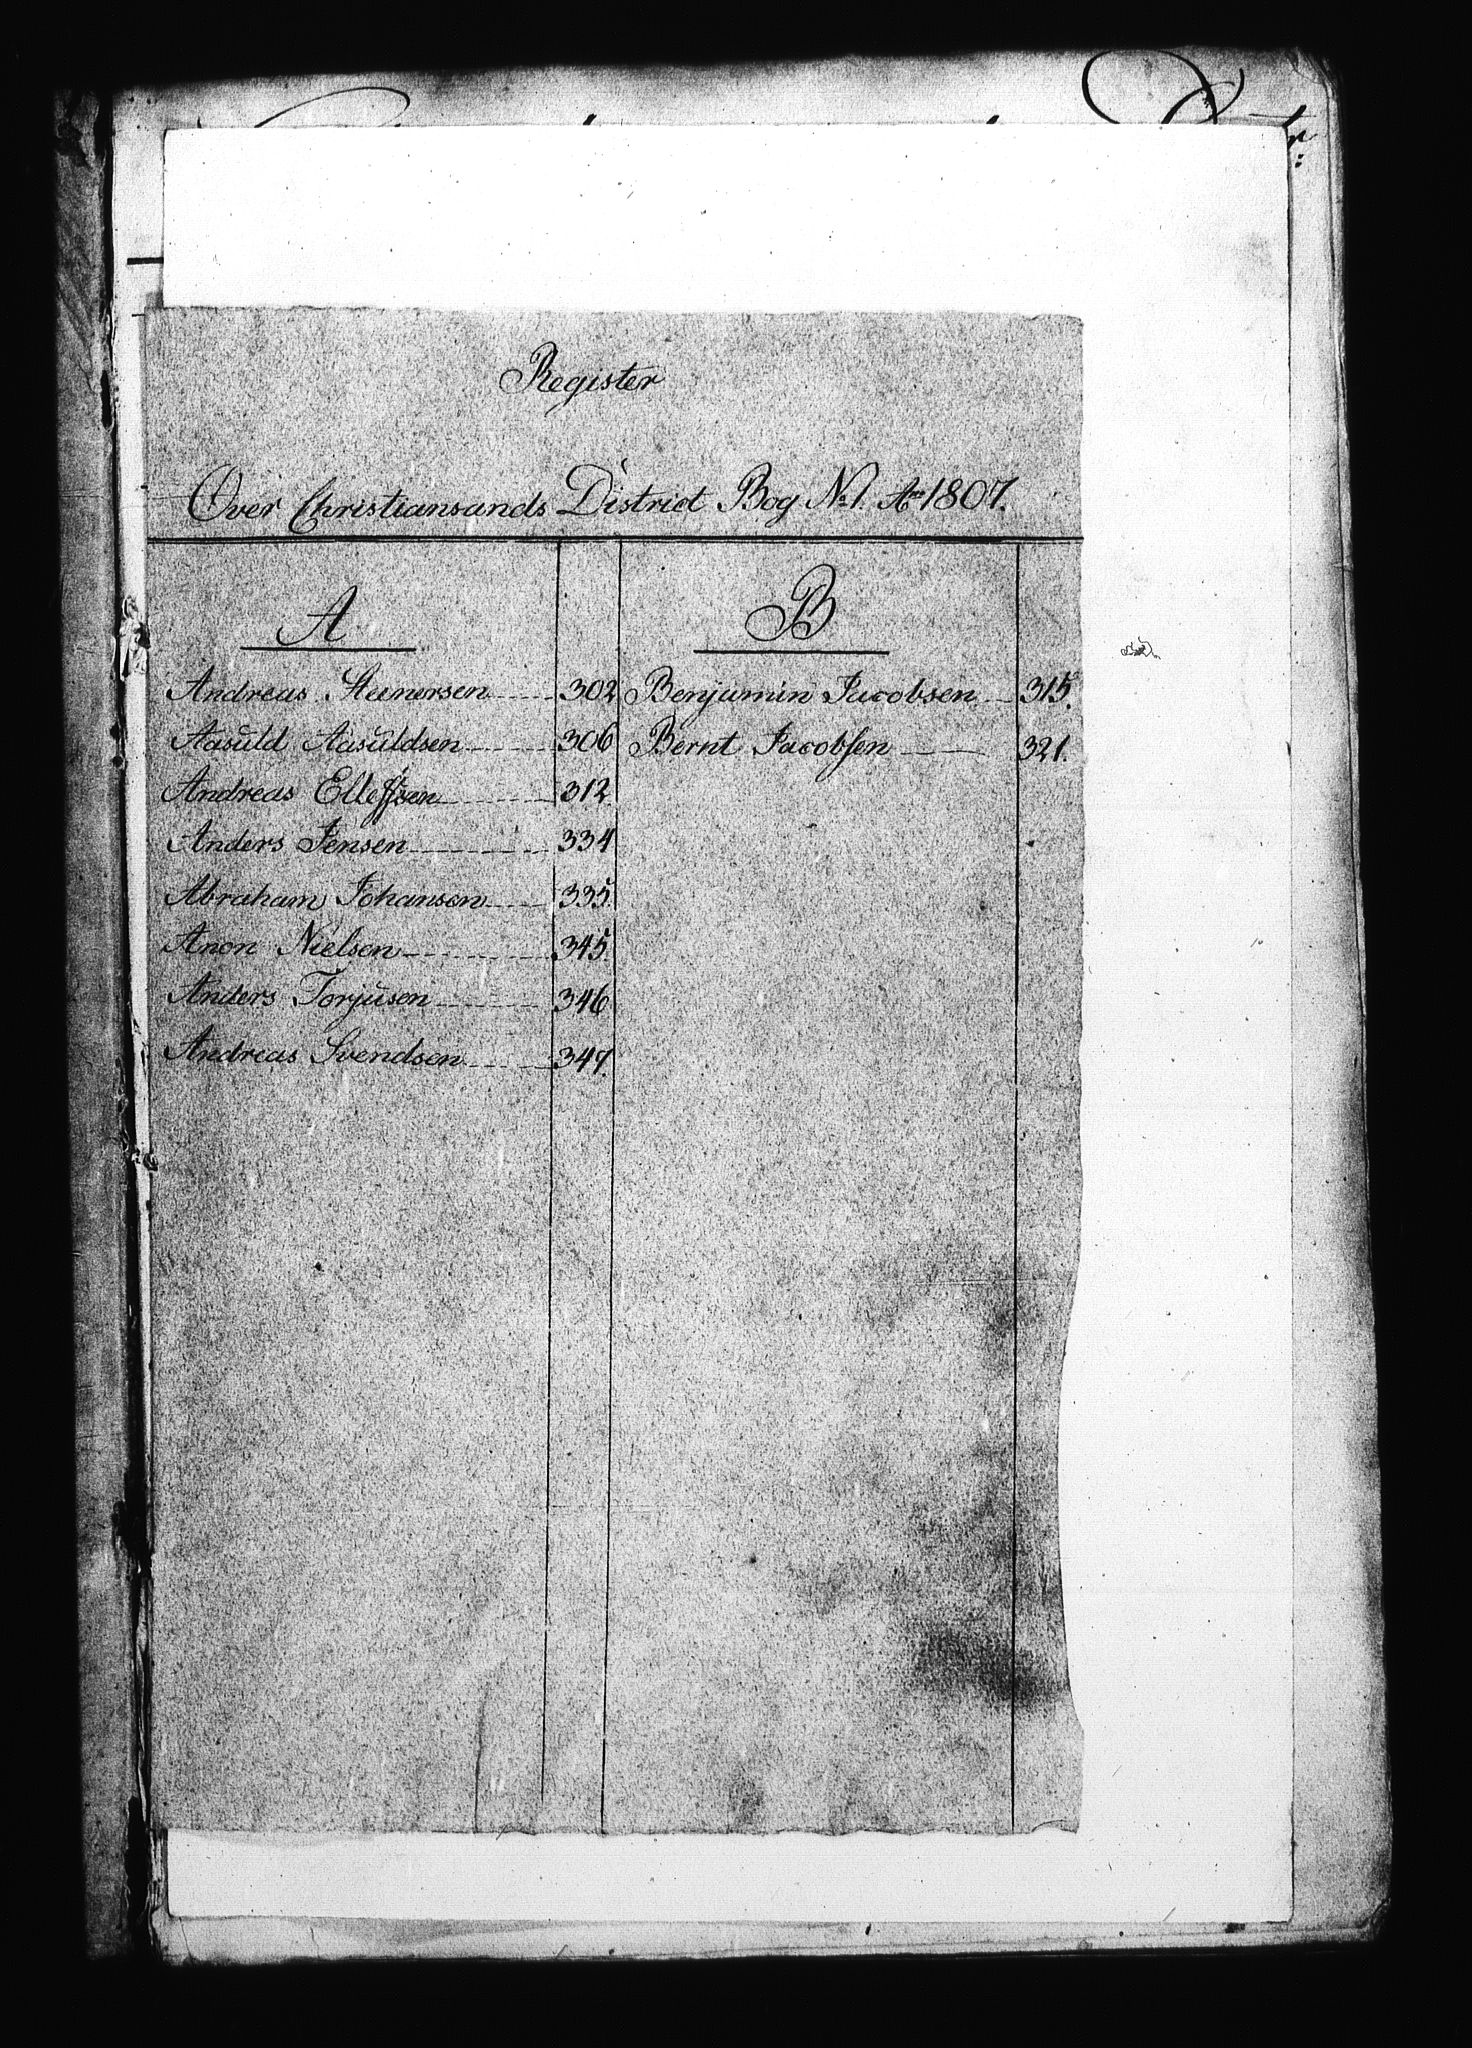 Register
Over Christiansands District Bog No 1. Ao 1807.
A
Andreas Steenersen 302
Aasuld Aasuldsen 306
Andreas Ellefsen 312
Anders Jensen 334
Abraham Johansen 335.
Anon Nielsen 345.
Anders Torjusen 346
Andreas Svendsen 347.
B
Benjamin Jacobsen 315.
Bernt Jacobsen 321.